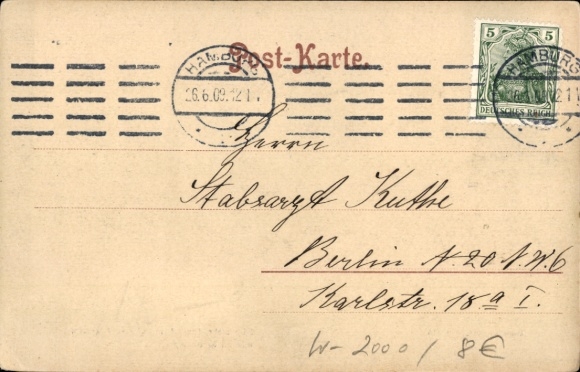 Post-Karte.
5 5
DEUTSCHES REICH
HAMBURG
26.6.09.12-1
HAMBURG
Herrn
Stabsarzt Kuthe
Berlin N.20 N.W.6
Karlstr. 18a I.
W-2000 / 8€